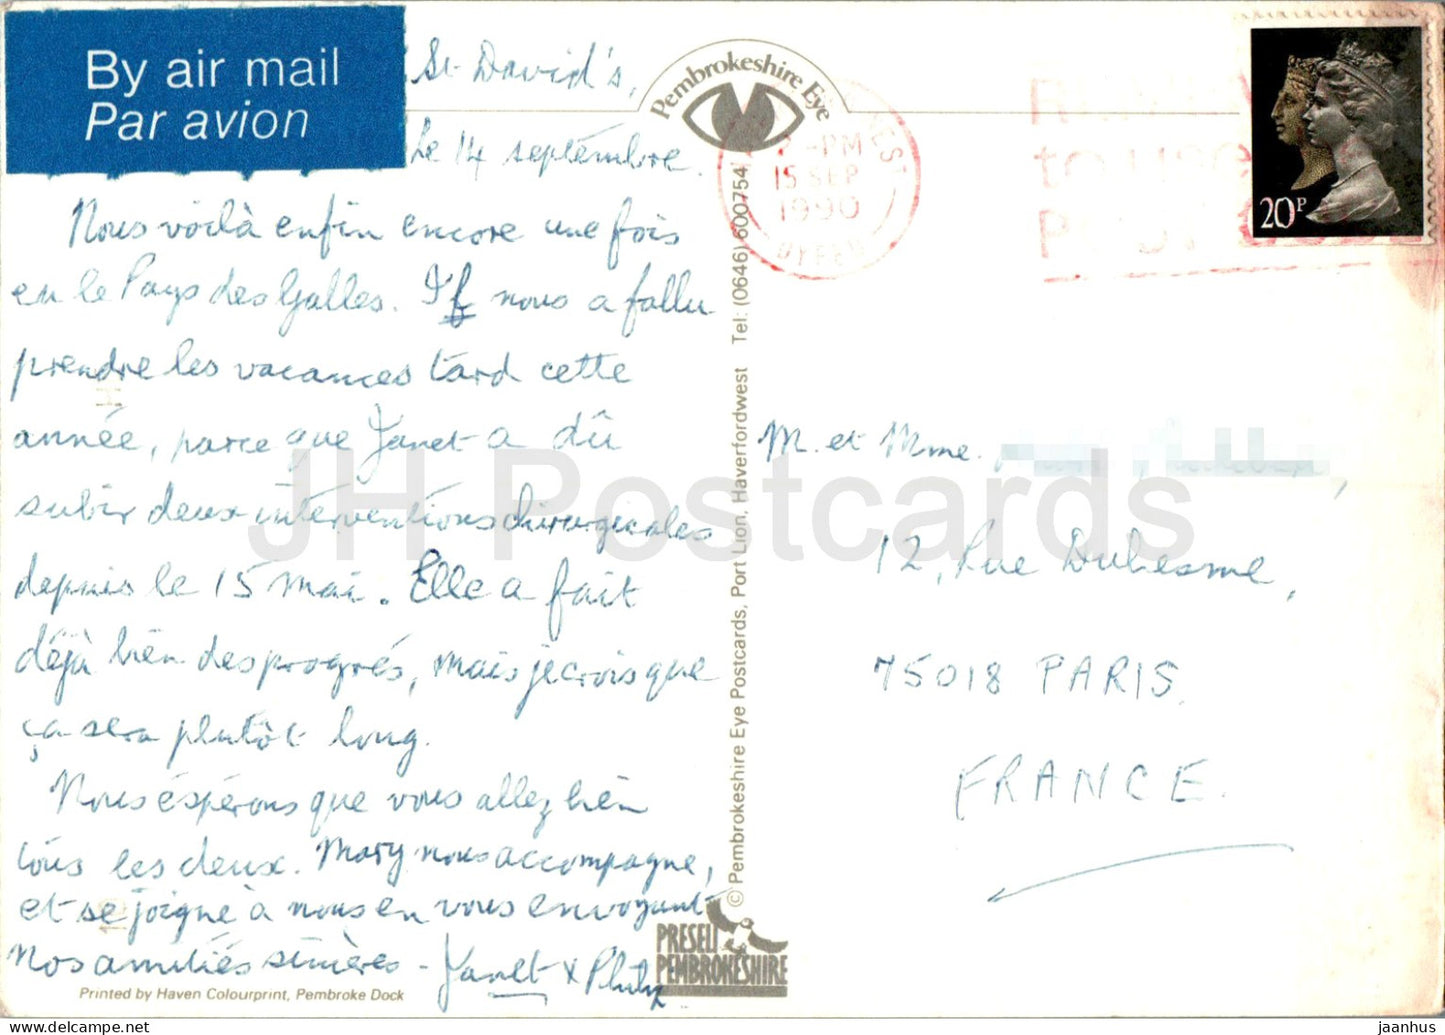 By air mail
Par avion
St David's,
Le 14 septembre.
Nous voilà enfin encore une fois
en le Pays des Galles. Il nous a fallu
prendre les vacances tard cette
année, parce que Janet a dû
subir deux interventions chirurgicales
depuis le 15 mai. Elle a fait
déjà bien des progrés, mais je crois que
ça sera plutôt long.
Nous éspérons que vous allez bien
tous les deux. Mary nous accompagne,
et se joigne à nous en vous envoyant
nos amitiés sincères - Janet &
Printed by Haven Colourprint, Pembroke Dock
Pembrokeshire Eye
© Pembrokeshire Eye Postcards, Port Lion, Haverfordwest Tel: (0646) 600754
PRESELI
PEMBROKESHIRE
-PM
15 SEP
1990
DYFED
to use
20P
M. et Mme.
12, Rue Duhesme,
75018 PARIS.
FRANCE.
JH Postcards
jaanhus — https://www.delcampe.net